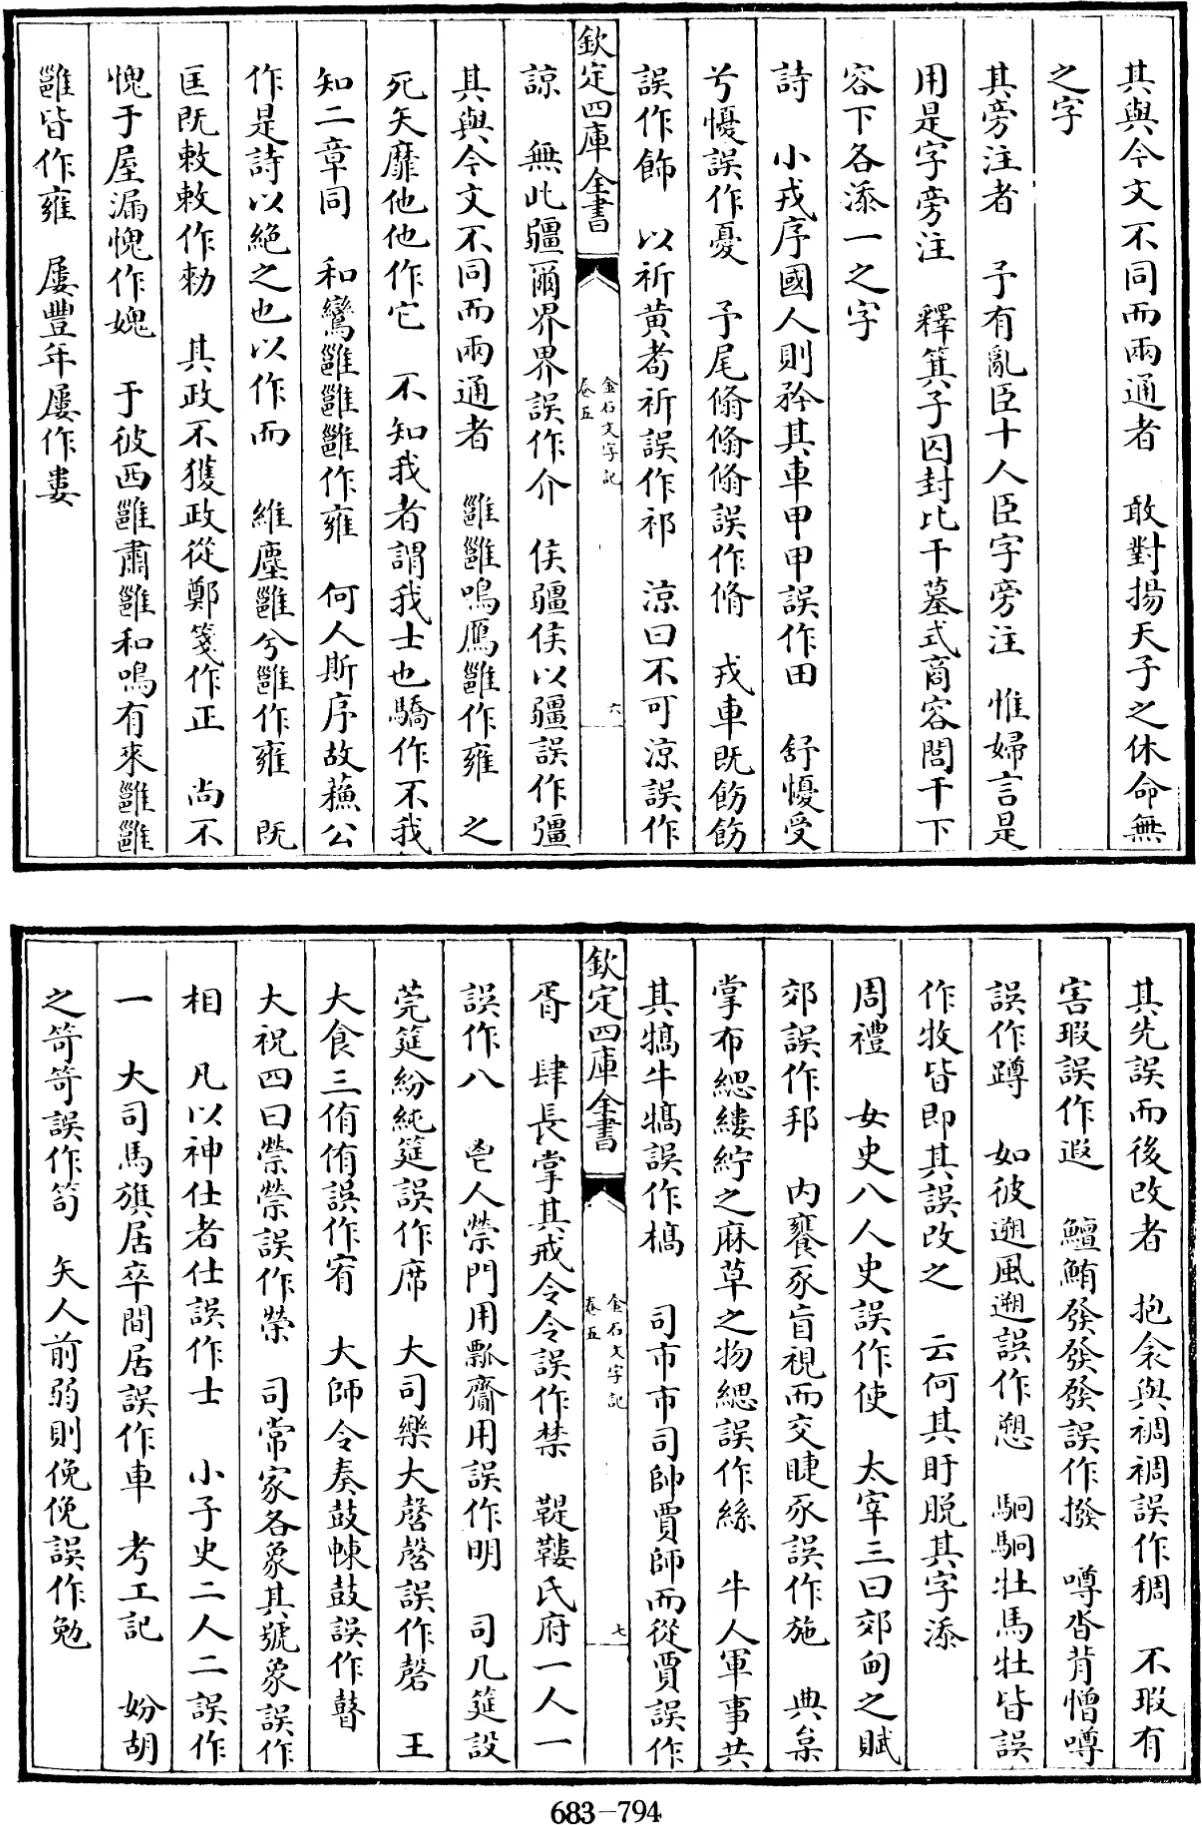 其與今文不同而兩通者　敢對揚天子之休命無
之字
其旁注者　予有亂臣十人臣字旁注　惟婦言是
用是字旁注　釋箕子囚封比干墓式商容閭干下
容下各添一之字
詩　小戎序國人則矜其車甲甲誤作田　舒懮受
兮懮誤作憂　予尾翛翛翛誤作脩　戎車既飭飭
誤作飾　以祈黃耇祈誤作祁　涼曰不可涼誤作
欽定四庫全書
金石文字記
卷五
六
諒　無此疆爾界界誤作介　侯疆侯以疆誤作彊
其與今文不同而兩通者　雝雝鳴鴈雝作雍　之
死矢靡他他作它　不知我者謂我士也驕作不我
知二章同　和鸞雝雝雝作雍　何人斯序故蘓公
作是詩以絶之也以作而　維塵雝兮雝作雍　既
匡既敕敕作勑　其政不獲政從鄭箋作正　尚不
愧于屋漏愧作媿　于彼西雝肅雝和鳴有來雝雝
雝皆作雍　屢豐年屢作婁
其先誤而後改者　抱衾與裯裯誤作稠　不瑕有
害瑕誤作遐　鱣鮪發發發誤作撥　噂沓背憎噂
誤作蹲　如彼遡風遡誤作愬　駉駉牡馬牡皆誤
作牧皆即其誤改之　云何其盱脱其字添
周禮　女史八人史誤作使　太宰三曰郊甸之賦
郊誤作邦　内饔豕盲視而交睫豕誤作施　典枲
掌布緦縷紵之麻草之物緦誤作絲　牛人軍事共
其犒牛犒誤作槁　司市市司帥賈師而從賈誤作
欽定四庫全書
金石文字記
卷五
七
胥　肆長掌其戒令令誤作禁　鞮鞻氏府一人一
誤作八　鬯人禜門用瓢齎用誤作明　司几筵設
莞筵紛純筵誤作席　大司樂大磬磬誤作磬　王
大食三侑侑誤作宥　大師令奏鼓朄鼓誤作瞽
大祝四曰禜禜誤作榮　司常家各象其號象誤作
相　凡以神仕者仕誤作士　小子史二人二誤作
一　大司馬旗居卒間居誤作車　考工記　妢胡
之笴笴誤作笱　矢人前弱則俛俛誤作勉
683-794